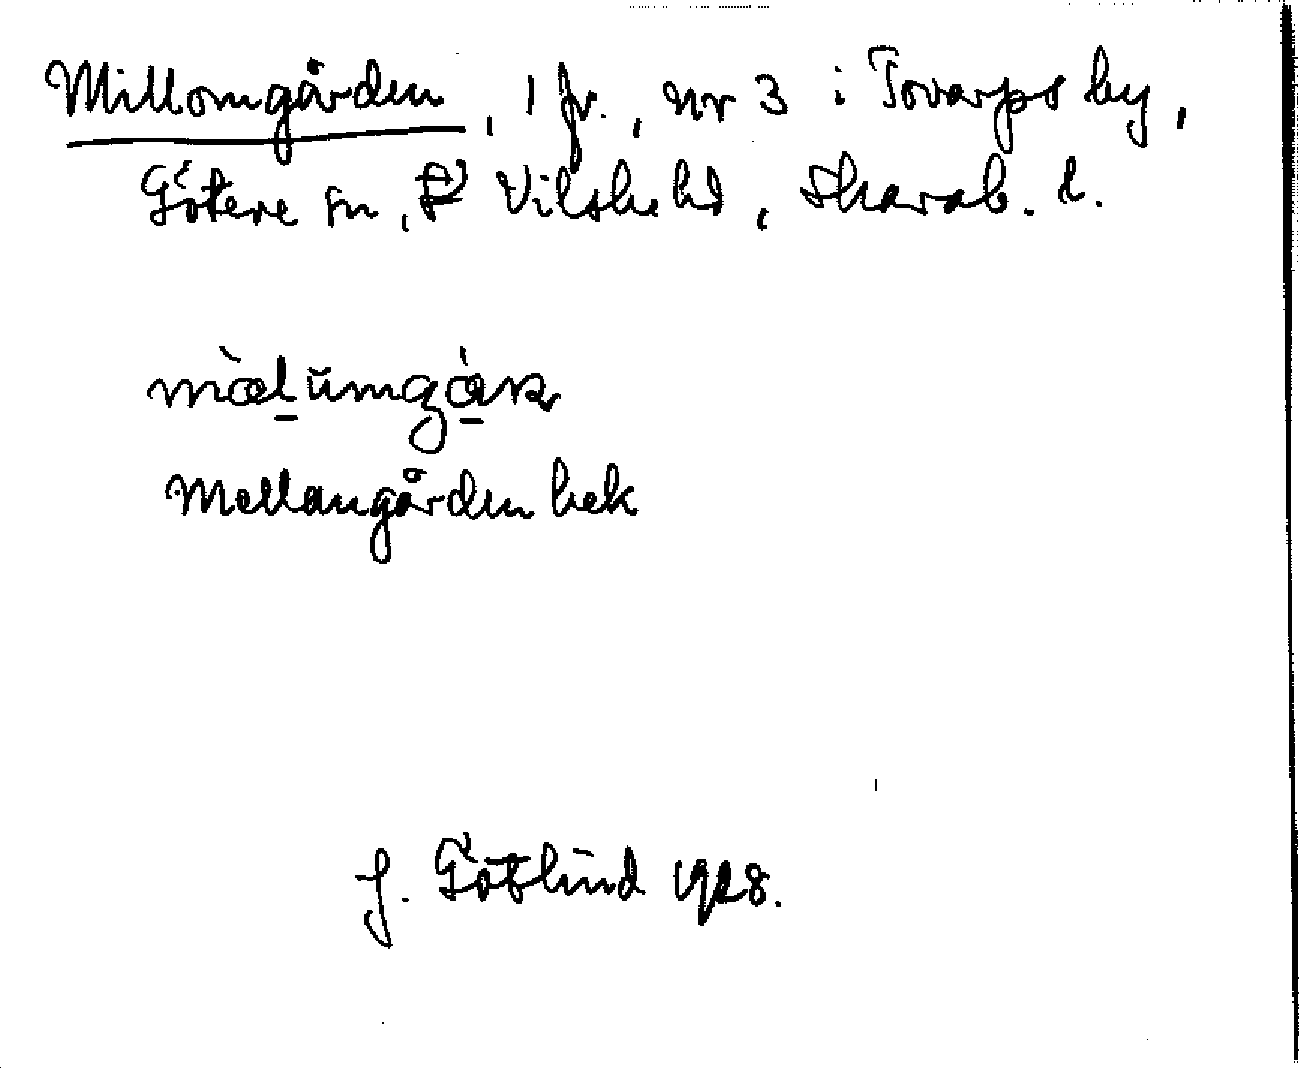 Millomgården, 1 fr., nr 3 i Tovarps by,
Götene sn, Vilske hd, Skarab. l.
Mellangården bek
J. Götlind 1928.